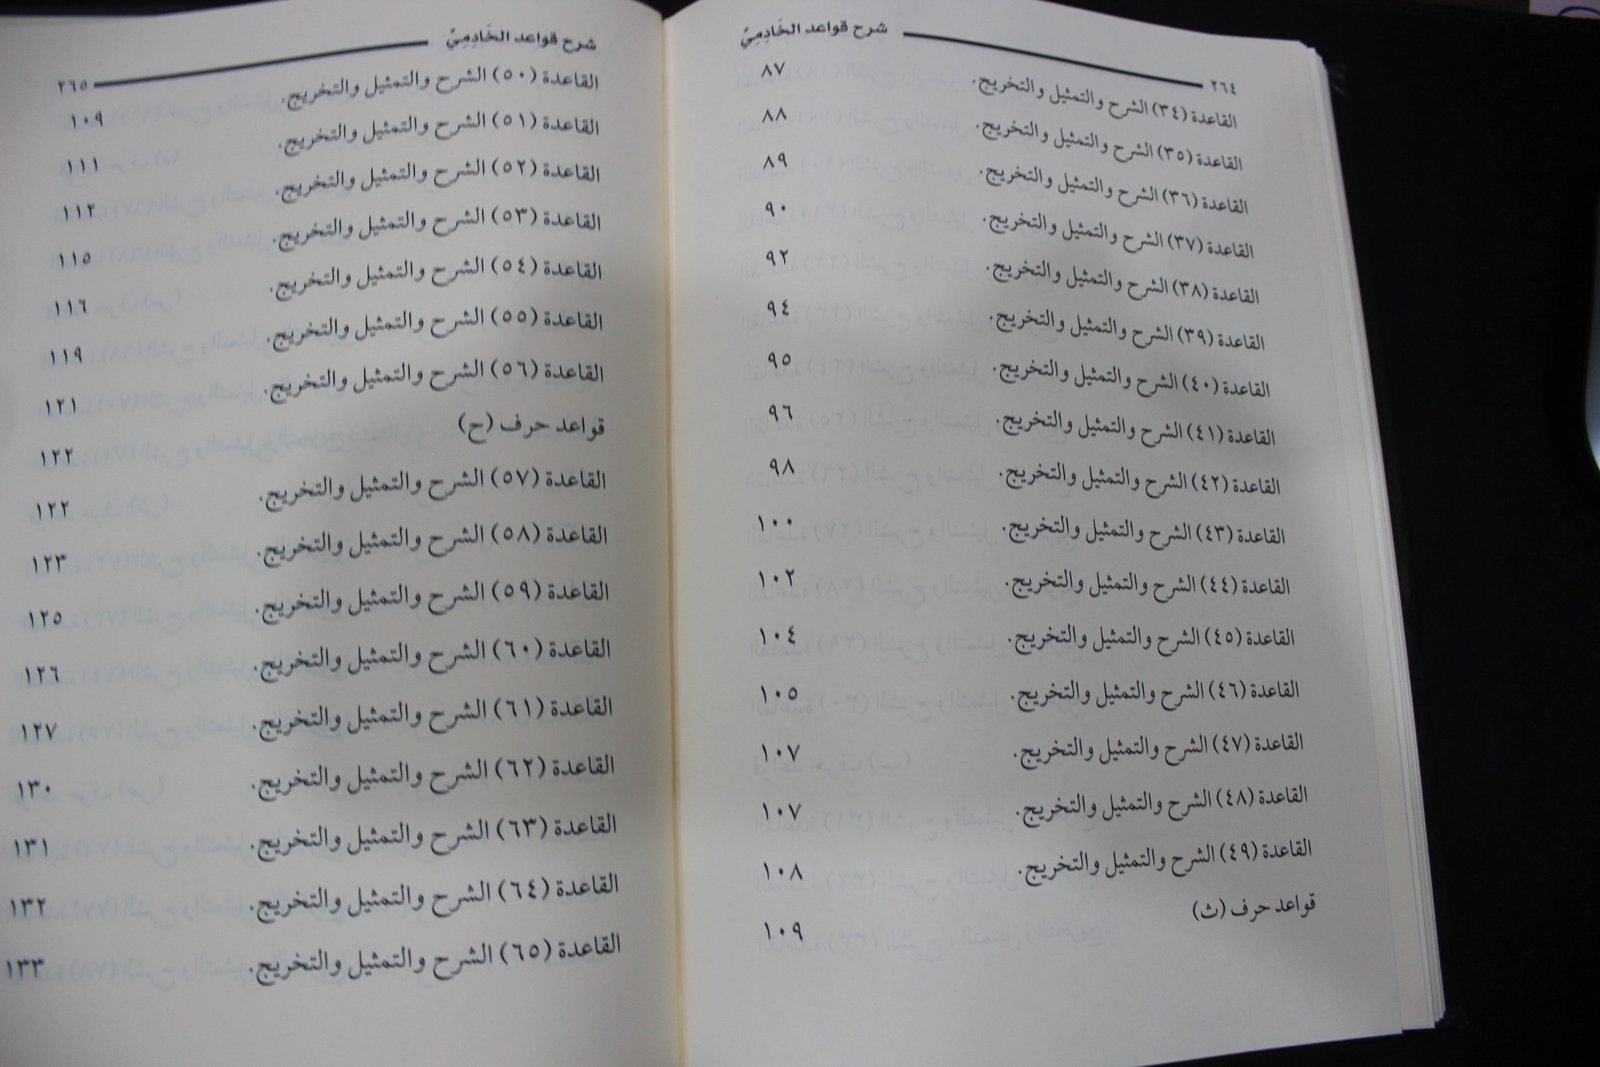 شرح قواعد الخَادِمِيّ
٢٦٤
القاعدة (٣٤) الشرح والتمثيل والتخريج. ٨٧
القاعدة (٣٥) الشرح والتمثيل والتخريج. ٨٨
القاعدة (٣٦) الشرح والتمثيل والتخريج. ٨٩
القاعدة (٣٧) الشرح والتمثيل والتخريج. ٩٠
القاعدة (٣٨) الشرح والتمثيل والتخريج. ٩٢
القاعدة (٣٩) الشرح والتمثيل والتخريج. ٩٤
القاعدة (٤٠) الشرح والتمثيل والتخريج. ٩٥
القاعدة (٤١) الشرح والتمثيل والتخريج. ٩٦
القاعدة (٤٢) الشرح والتمثيل والتخريج. ٩٨
القاعدة (٤٣) الشرح والتمثيل والتخريج. ١٠٠
القاعدة (٤٤) الشرح والتمثيل والتخريج. ١٠٢
القاعدة (٤٥) الشرح والتمثيل والتخريج. ١٠٤
القاعدة (٤٦) الشرح والتمثيل والتخريج. ١٠٥
القاعدة (٤٧) الشرح والتمثيل والتخريج. ١٠٧
القاعدة (٤٨) الشرح والتمثيل والتخريج. ١٠٧
القاعدة (٤٩) الشرح والتمثيل والتخريج. ١٠٨
قواعد حرف (ث) ١٠٩
شرح قواعد الخَادِمِيّ
٢٦٥
القاعدة (٥٠) الشرح والتمثيل والتخريج. ١٠٩
القاعدة (٥١) الشرح والتمثيل والتخريج. ١١١
القاعدة (٥٢) الشرح والتمثيل والتخريج. ١١٢
القاعدة (٥٣) الشرح والتمثيل والتخريج. ١١٥
القاعدة (٥٤) الشرح والتمثيل والتخريج. ١١٦
القاعدة (٥٥) الشرح والتمثيل والتخريج. ١١٩
القاعدة (٥٦) الشرح والتمثيل والتخريج. ١٢١
قواعد حرف (ح) ١٢٢
القاعدة (٥٧) الشرح والتمثيل والتخريج. ١٢٢
القاعدة (٥٨) الشرح والتمثيل والتخريج. ١٢٣
القاعدة (٥٩) الشرح والتمثيل والتخريج. ١٢٥
القاعدة (٦٠) الشرح والتمثيل والتخريج. ١٢٦
القاعدة (٦١) الشرح والتمثيل والتخريج. ١٢٧
القاعدة (٦٢) الشرح والتمثيل والتخريج. ١٣٠
القاعدة (٦٣) الشرح والتمثيل والتخريج. ١٣١
القاعدة (٦٤) الشرح والتمثيل والتخريج. ١٣٢
القاعدة (٦٥) الشرح والتمثيل والتخريج. ١٣٣